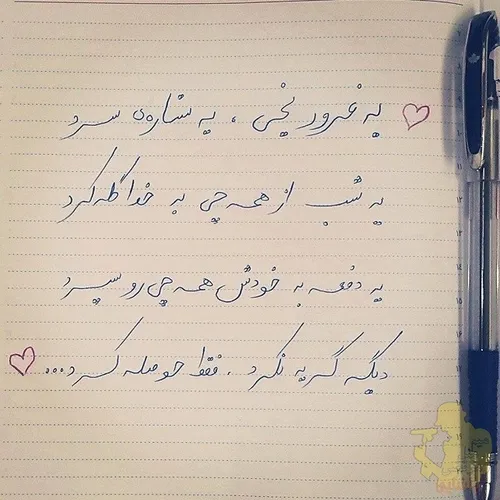 یه غرور یخی ، یه ستاره سرد
یه شب از همه چی به خدا گله کرد
یه دفعه به خودش همه چی رو سپرد
دیگه گریه نکرد ، فقط حوصله کرد...